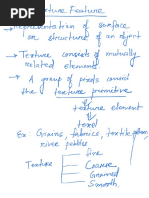 Texture Feature
→ Representation of surface
or structure of an object
→ Texture consists of mutually
related elements
→ A group of pixels consid
the texture primitive
texture element
texel
Ex: Grains, fabrics, textile
river pebbles
Texture
Fine
Coarse
Grained
Smooth